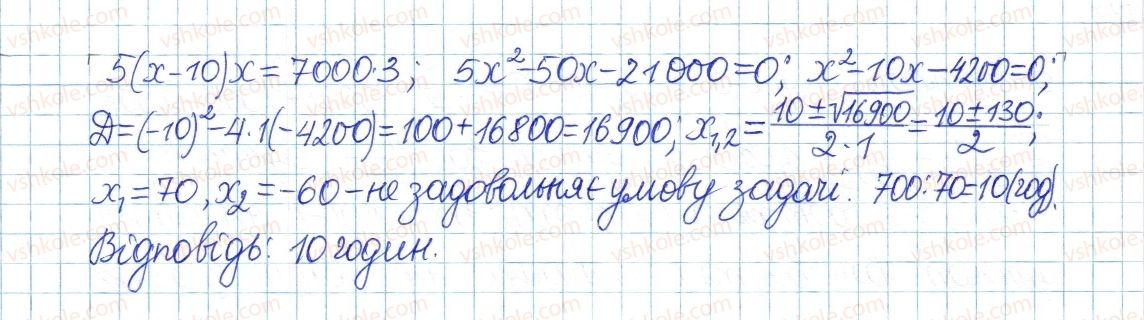 5(x-10)x=7000·3; 5x²-50x-21000=0; x²-10x-4200=0;
Д=(-10)²-4·1(-4200)=100+16800=16900; x₁,₂=(10±√16900)/(2·1)=(10±130)/2;
x₁=70, x₂=-60 – не задовольняє умову задачі. 700:70=10(год).
Відповідь: 10 годин.